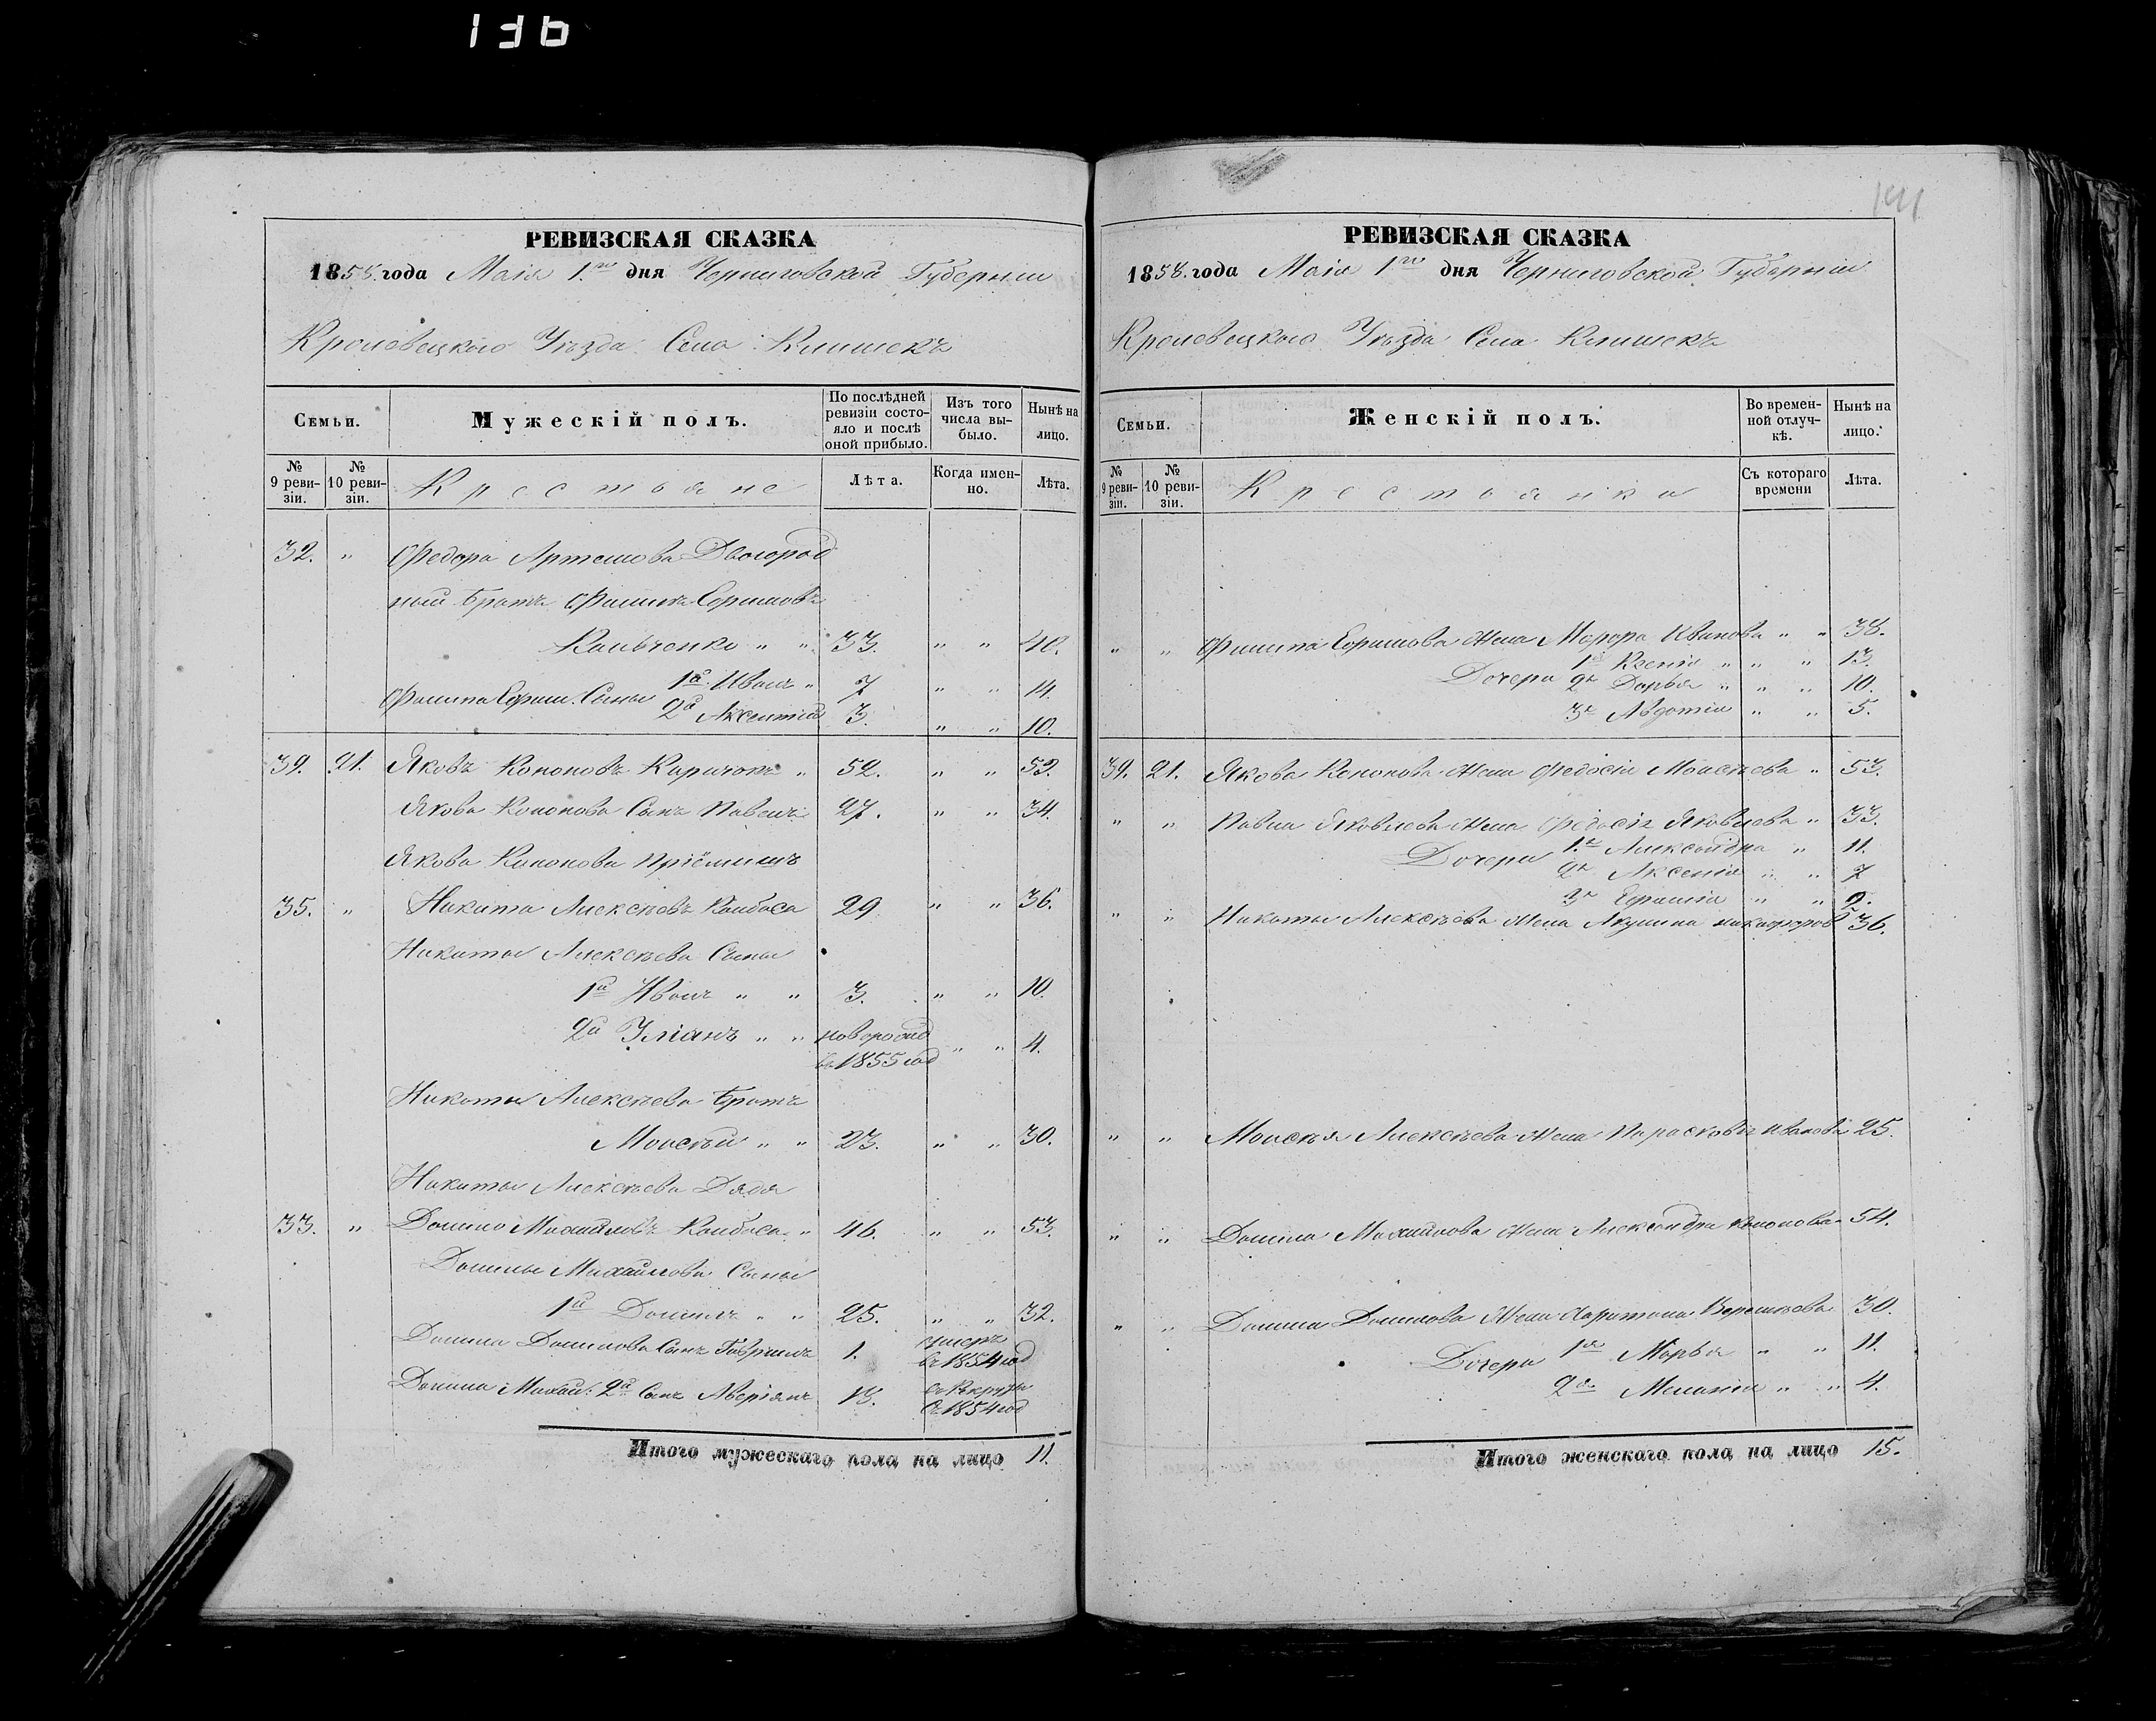 136
РЕВИЗСКАЯ СКАЗКА
1858. года Маія 1.го дня Черниговской Губерніи
Кролевецкаго Уѣзда Села Клишекъ
Семьи.
Мужескій полъ.
По послѣдней ревизіи состояло и послѣ оной прибыло.
Изъ того числа выбыло.
Нынѣ на лицо.
№ 9 ревизіи.
№ 10 ревизіи.
Крестьяне
Лѣта.
Когда именно.
Лѣта.
32. " Федора Артемова Двоюрод
ный братъ Филипъ Ефимовъ
" " 33. " " 40.
Филипа Ефим. Сыны 1й Иванъ " 7 " " 14.
2й Аксентій 3. " " 10.
39. 21. Яковъ Кононовъ Киричокъ " 52. " " 59.
Якова Кононова Сынъ Павелъ 27. " " 34.
Якова Кононова Пріёмышъ
35. " Никита Алексѣевъ Колбаса 29 " " 36.
Никиты Алексѣева Сыны
1й Иванъ " " 3. " " 10.
2й Уліанъ " " новорожд
въ 1855 год " " 4.
Никиты Алексѣева братъ
Моисѣй " " 23. " " 30.
Никиты Алексѣева Дядя
33. " Данило Михайловъ Колбаса " 46. " " 53.
Данилы Михайлова Сыны
1й Данилъ " " 25. " " 32.
Данила Данилова Сынъ Гаврилъ 1. умеръ
въ 1854 год
Данила Михай: 2й Сынъ Аверіянъ 18. въ Рекруты
съ 1854 год
Итого мужескаго пола на лицо 11.
141
РЕВИЗСКАЯ СКАЗКА
1858. года Маія 1го дня Черниговской Губерніи
Кролевецкаго Уѣзда Села Клишекъ
Семьи.
Женскій полъ.
Во временной отлучкѣ.
Нынѣ на лицо.
№ 9 ревизіи.
№ 10 ревизіи.
Крестьянки
Съ котораго времени
Лѣта.
" " Филипа Ефимова жена Марфа Иванова " " 38.
Дочери 1я Ксенія " " " 13.
2я Дарья " " " 10.
3я Авдотія " " 5.
39. 21. Якова Кононова жена Федосія Моисѣева " 53.
" " Павла Яковлева жена Федосія Яковлева " 33.
Дочери 1я Александра " 11.
2я Аксенія " " 7
3я " "
" " Никиты Алексѣева жена Акулина никифоров 36.
" " Моисѣя Алексѣева жена Парасковія Иванова 25.
" " Данила Михайлова жена Александра Кононова 54.
" " Данила Данилова жена 30.
Дочери 1я Марья " " 11.
2я Меланія " " 4.
Итого женскаго пола на лицо 15.